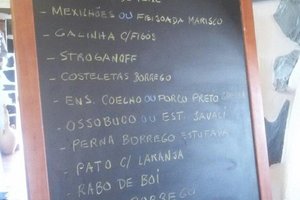 - MEXILHÕES OU FEIJOADA MARISCO
- GALINHA C/FIGOS
- STROGANOFF
- COSTELETAS BORREGO
- ENS. COELHO OU PORCO PRETO
- OSSOBUCO OU EST. JAVALI
- PERNA BORREGO ESTUFADA
- PATO C/ LARANJA
- RABO DE BOI
BORREGO